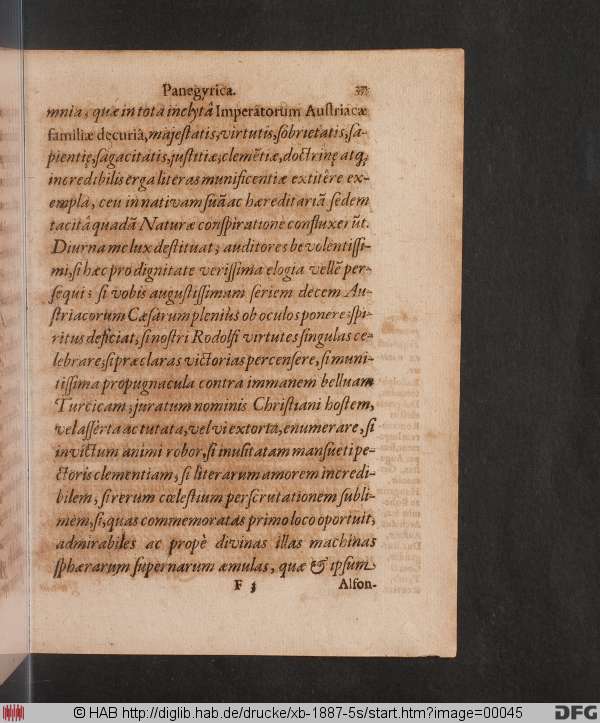 Panegyrica.
mnia, quæ in tota inclytâ Imperatorum Austriacæ
familiæ decuriâ, majestatis, virtutis, sobrietatis, sa-
pientię, sagacitatis, justitiæ, clemẽtiæ, doctrinę atq;
incredibilis erga literas munificentiæ extitêre ex-
empla, ceu in nativam suã ac hæreditariã sedem
tacitâ quadã Naturæ conspiratione confluxerũt.
Diurna me lux destituat; auditores bevolentissi-
mi, si hæc pro dignitate verissima elogia vellẽ per-
sequi; si vobis augustissimam seriem decem Au-
striacorum Cæsarum plenius ob oculos ponere; spi-
ritus deficiat; si nostri Rodolfi virtutes singulas ce-
lebrare; si præclaras victorias percensere, si muni-
tissima propugnacula contra immanem belluam
Turcicam; juratum nominis Christiani hostem,
vel asserta ac tutata, vel vi extorta, enumerare, si
invictum animi robor, si inusitatam mansueti pe-
ctoris clementiam, si literarum amorem incredi-
bilem, si rerum cœlestium perscrutationem subli-
mem, si, quas commemoratas primo loco oportuit,
admirabiles ac propè divinas illas machinas
sphærarum supernarum æmulas, quæ & ipsum
F 3 Alfon-
© HAB http://diglib.hab.de/drucke/xb-1887-5s/start.htm?image=00045
DFG